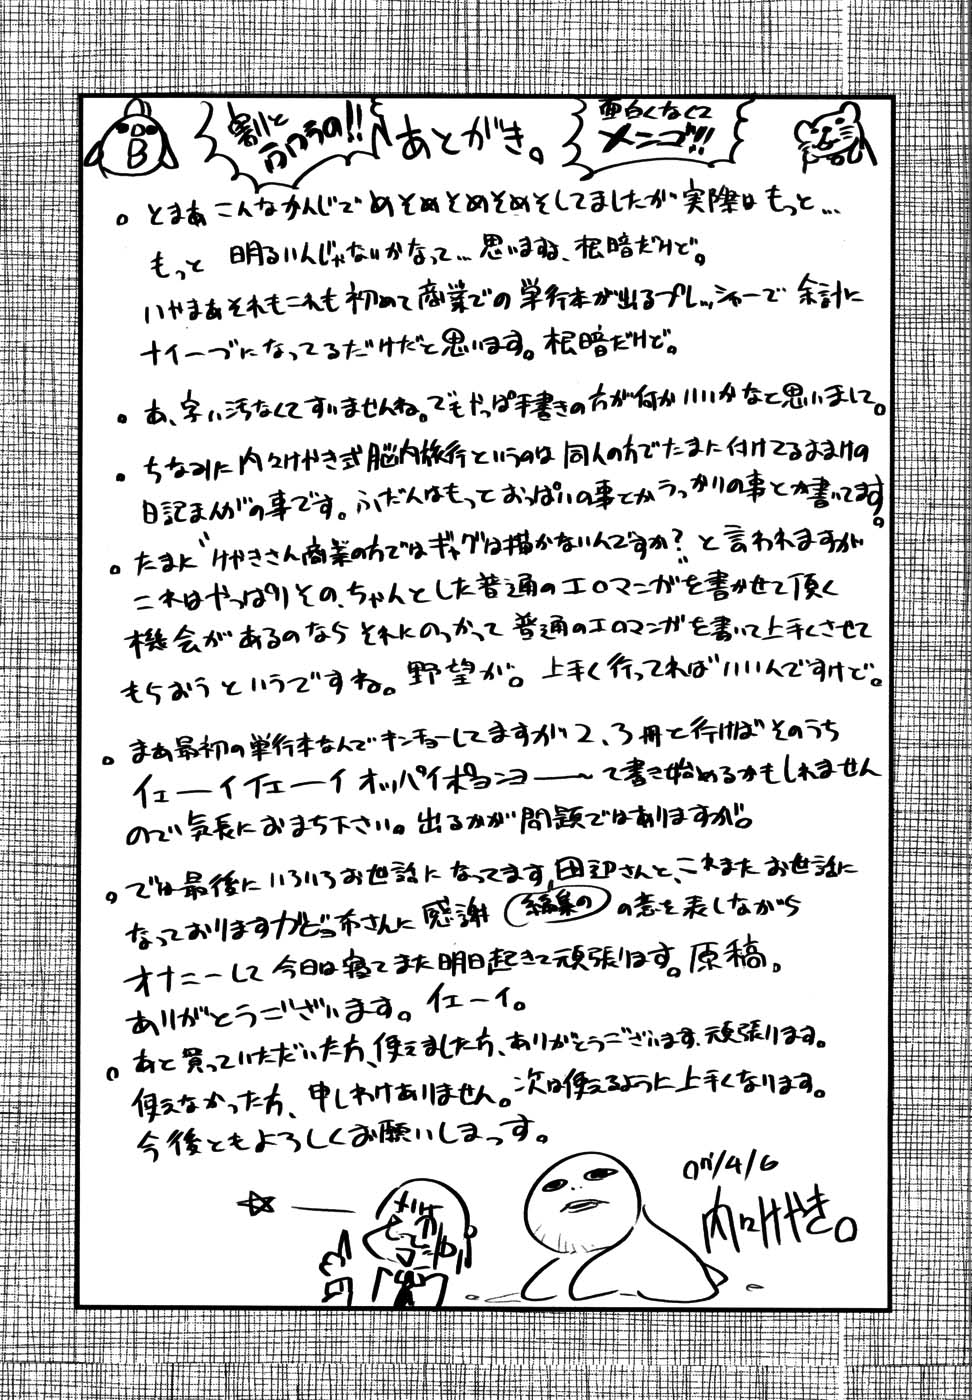 B
割と
フツーの!!
あとがき。
面白くなくて
メンゴ!!!
。とまあこんなかんじでめそめそめそめそしてましたが実際はもっと…
もっと 明るいんじゃないかなって…思いますね、根暗だけど。
いやまあそれもこれも初めて商業での単行本が出るプレッシャーで 余計に
ナイーブになってるだけだと思います。根暗だけど。
。あ、字い汚なくてすいませんね。でもやっぱ手書きの方が何かいいかなと思いまして。
。ちなみに内々けやき式脳内旅行というのは同人の方でたまに付けてるおまけの
日記まんがの事です。ふだんはもっとおっぱいの事とかうっかりの事とか書いてます。
。たまに"けやきさん商業の方ではギャグは描かないんですか?"と言われますが
これはやっぱりその、ちゃんとした普通のエロマンガを書かせて頂く
機会があるのならそれにのっかって 普通のエロマンガを書いて上手くさせて
もらおうというですね。野望が。上手く行ってればいいんですけど。
。まあ最初の単行本なんでキンチョーしてますが2、3冊と行けばそのうち
イェーイイェーイ オッパイポヨンヨーーって書き始めるかもしれません
ので気長におまち下さい。出るかが問題ではありますが。
。では最後にいろいろお世話になってます田辺さんと、これまたお世話に
なっております 編集の さんに感謝の意を表しながら
オナニーして今日は寝てまた明日起きて頑張ります。原稿。
ありがとうございます。イェーイ。
。あと買っていただいた方、使えました方、ありがとうございます、頑張ります。
使えなかった方、申しわけありません。次は使えるように上手くなります。
今後ともよろしくお願いしまっす。
07/4/6
内々けやき。